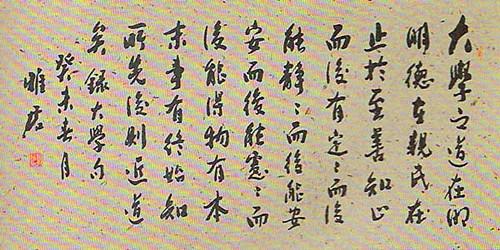 大學之道在明
明德在親民在
止於至善知止
而後有定々而後
能静々而後能安
安而後能慮々而
後能得物有本
末事有終始知
所先後則近道
矣錄大學句
癸未春月